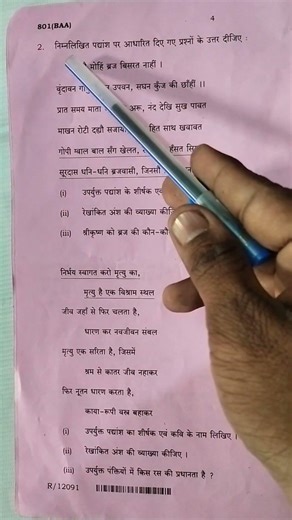 801(BAA)
4
2. निम्नलिखित पद्यांश पर आधारित दिए गए प्रश्नों के उत्तर दीजिए :
मोहि ब्रज बिसरत नाहीं ।
वृंदावन उपवन, सघन कुँज की छाँहीं ।।
प्रात समय माता अरू, नंद देखि सुख पावत
माखन रोटी दह्यौ सजाय हित साथ खवावत
गोपी ग्वाल बाल सँग खेलत, हँसत
सूरदास धनि-धनि ब्रजवासी, जिनसौं
(i) उपर्युक्त पद्यांश के शीर्षक एवं
(ii) रेखांकित अंश की व्याख्या
(iii) श्रीकृष्ण को ब्रज की
निर्भय स्वागत करो मृत्यु का,
मृत्यु है एक विश्राम स्थल
जीव जहाँ से फिर चलता है,
धारण कर नवजीवन संबल
मृत्यु एक सरिता है, जिसमें
श्रम से कातर जीव नहाकर
फिर नूतन धारण करता है,
काया-रूपी वस्त्र बहाकर
(i) उपर्युक्त पद्यांश का शीर्षक एवं कवि के नाम लिखिए ।
(ii) रेखांकित अंश की व्याख्या कीजिए ।
(iii) उपर्युक्त पंक्तियों में किस रस की प्रधानता है ?
R/12091